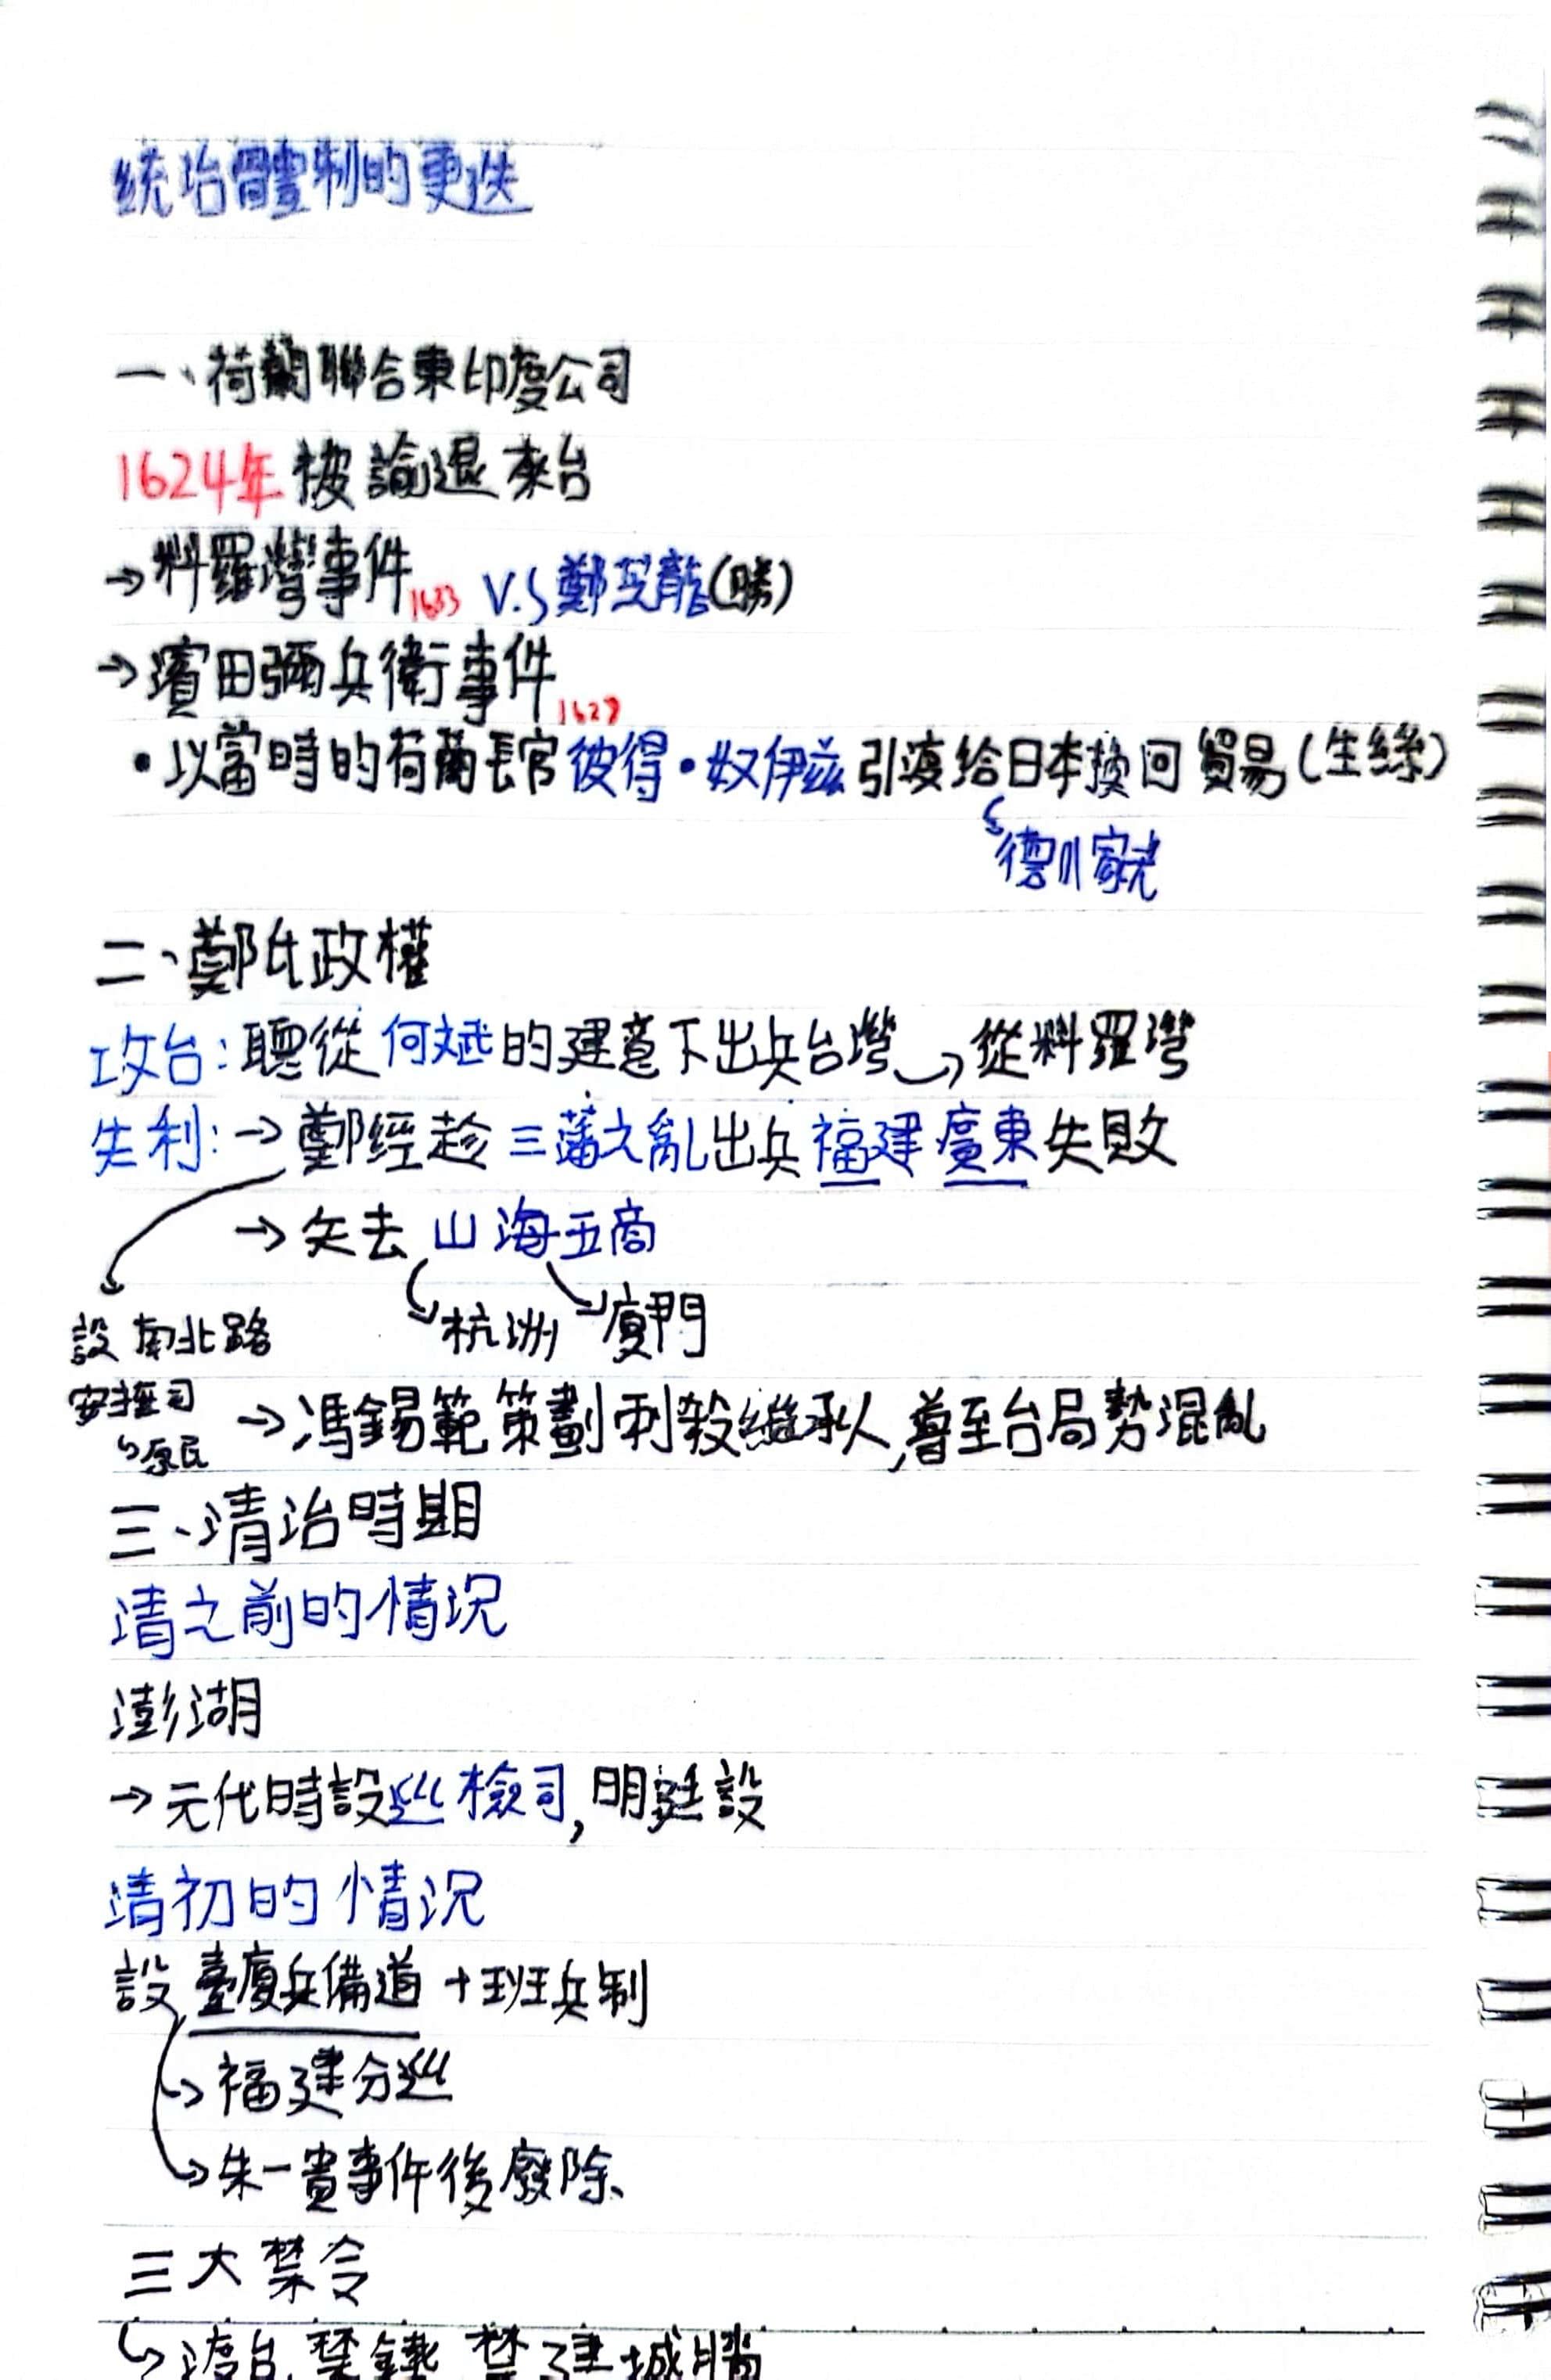 統治體制的更迭
一、荷蘭聯合東印度公司
1624年 被諭退來台
→料羅灣事件1633 V.S鄭芝龍(勝)
→濱田彌兵衛事件
•以當時的荷蘭長官彼得•奴伊茲引渡給日本換回貿易(生絲)
德川家光
二、鄭氏政權
攻台:聽從何斌的建意下出兵台灣→從料羅灣
失利:→鄭經趁三藩之亂出兵福建廣東失敗
→失去山海五商
杭洲 廈門
設南北路
安撫司
→原民
→馮錫範策劃刺殺繼承人,導至台局勢混亂
三、清治時期
清之前的情況
澎湖
→元代時設巡檢司,明廷設
清初的情況
設臺廈兵備道+班兵制
→福建分巡
→朱一貴事件後廢除
三大禁令
→渡台 禁鐵 禁建城牆